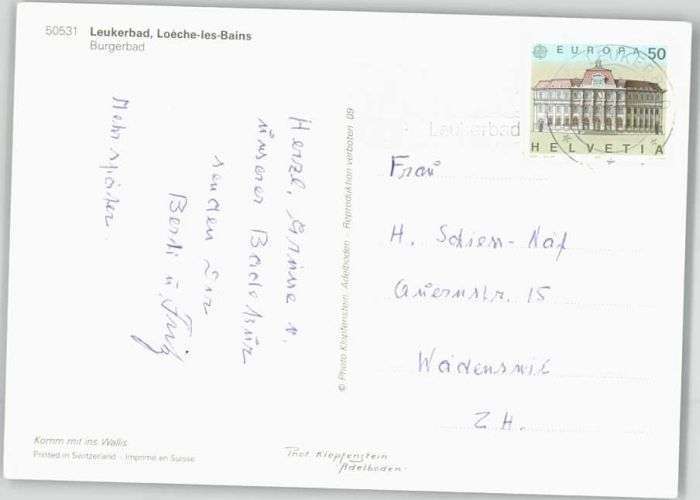 50531 Leukerbad, Loèche-les-Bains
Burgerbad
EUROPA 50
HELVETIA
Leukerbad
Herzl. Grüsse v.
unserer Badekur
senden Dir
Berti u. Fritz
Mehr später.
© Photo Klopfenstein, Adelboden – Reproduktion verboten 09
Frau
H. Schiess-Näf
15
Wädenswil
ZH.
Komm mit ins Wallis
Printed in Switzerland - Imprimé en Suisse
Phot. Klopfenstein
Adelboden